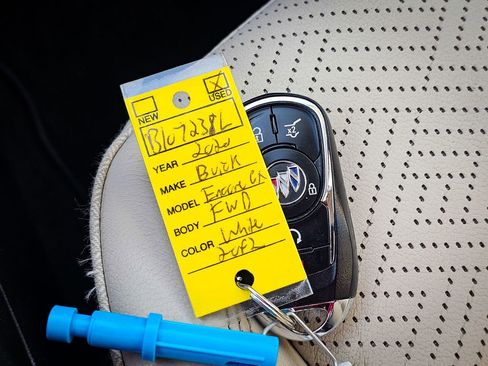 NEW
USED
B107238L
YEAR 2020
MAKE Buick
MODEL Encore GX
BODY FWD
COLOR White